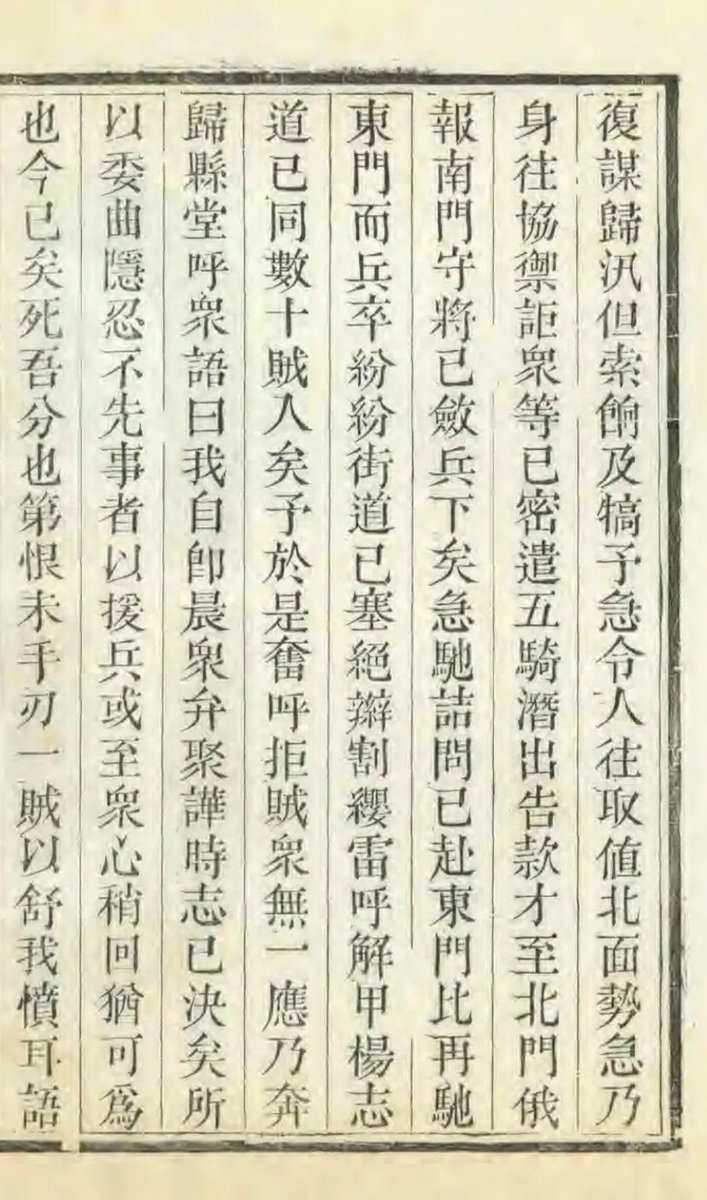 復謀歸汛但索餉及犒予急令人往取值北面勢急乃
身往協禦詎衆等已密遣五騎潛出告款才至北門俄
報南門守將已斂兵下矣急馳詰問已赴東門比再馳
東門而兵卒紛紛街道已塞絕辮割纓雷呼解甲楊志
道已同數十賊人矣予於是奮呼拒賊衆無一應乃奔
歸縣堂呼衆語曰我自卽晨衆弁聚譁時志已決矣所
以委曲隱忍不先事者以援兵或至衆心稍回猶可爲
也今已矣死吾分也第恨未手刃一賊以舒我憤耳語